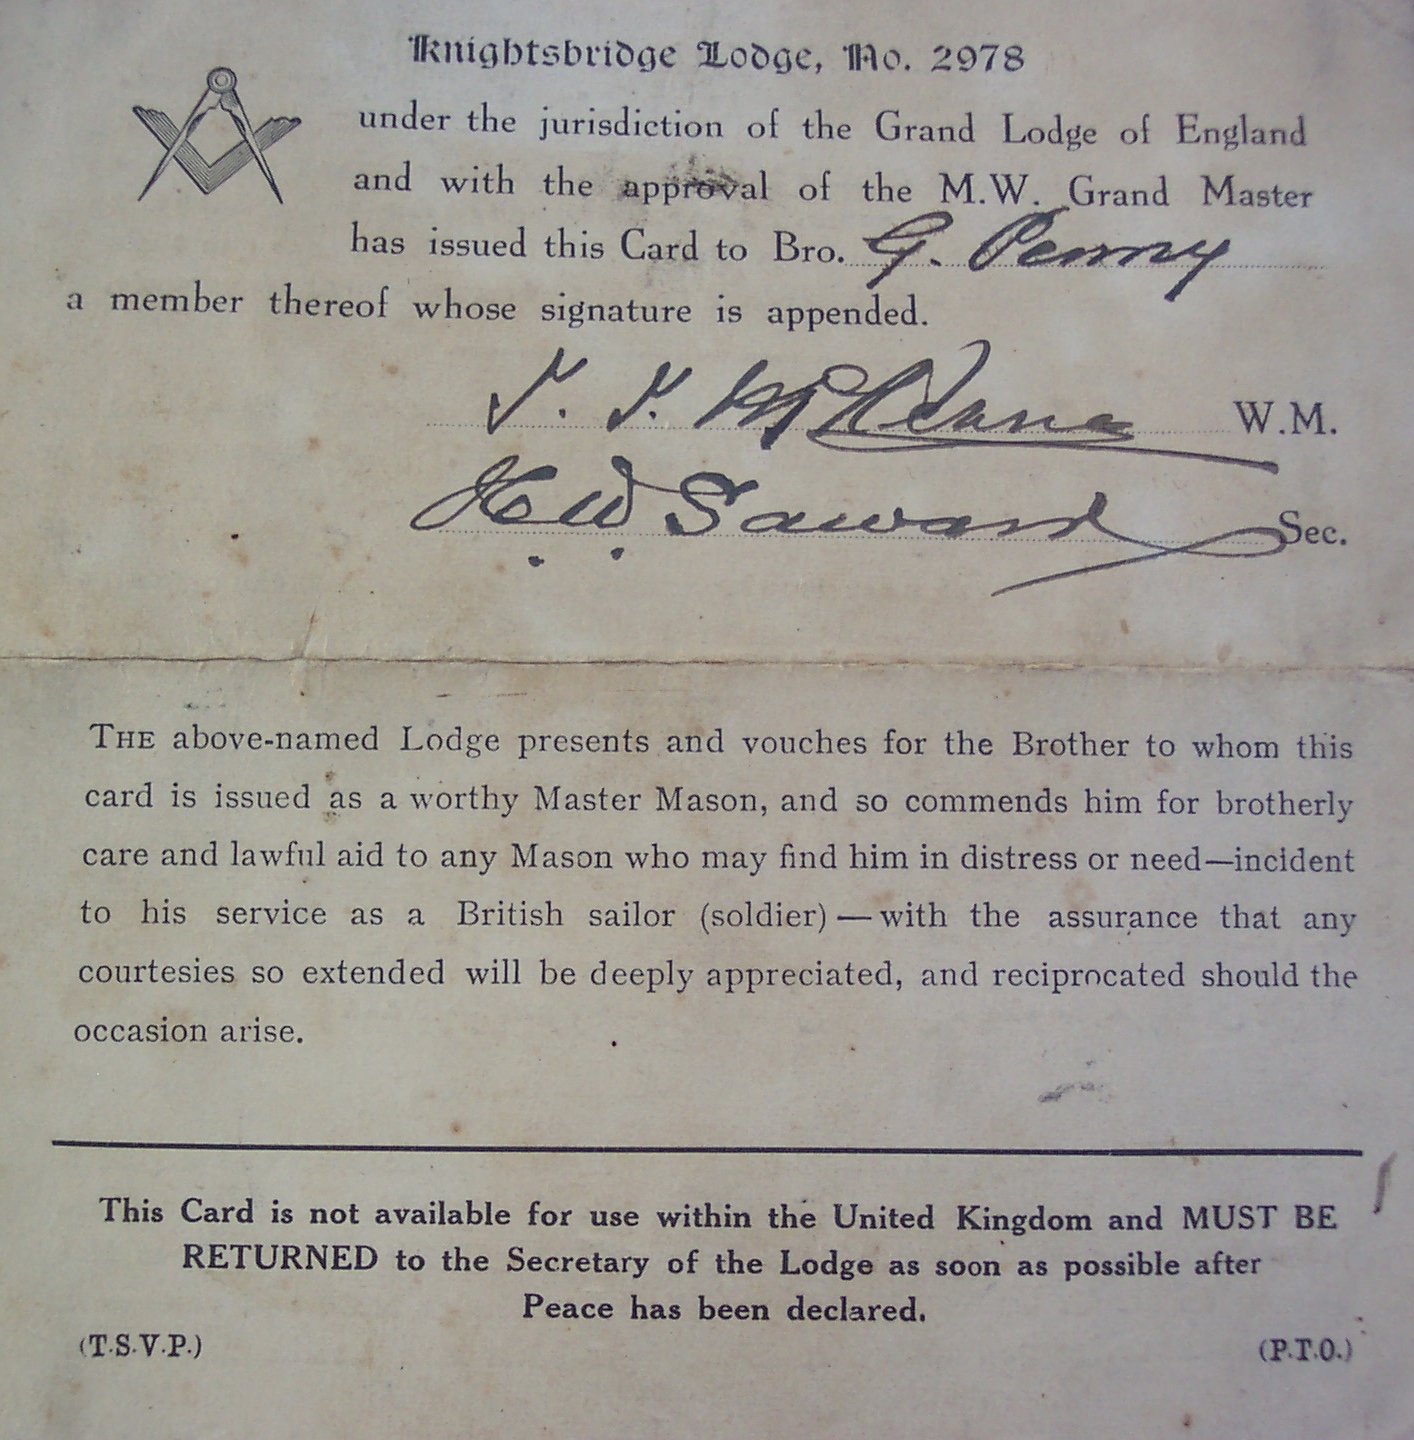 Knightsbridge Lodge, No. 2978
under the jurisdiction of the Grand Lodge of England
and with the approval of the M.W. Grand Master
has issued this Card to Bro. G. Penny
a member thereof whose signature is appended.
McKenna W.M.
H. W. Saward Sec.
THE above-named Lodge presents and vouches for the Brother to whom this
card is issued as a worthy Master Mason, and so commends him for brotherly
care and lawful aid to any Mason who may find him in distress or need—incident
to his service as a British sailor (soldier) — with the assurance that any
courtesies so extended will be deeply appreciated, and reciprocated should the
occasion arise.
This Card is not available for use within the United Kingdom and MUST BE
RETURNED to the Secretary of the Lodge as soon as possible after
Peace has been declared.
(T.S.V.P.) (P.T.O.)